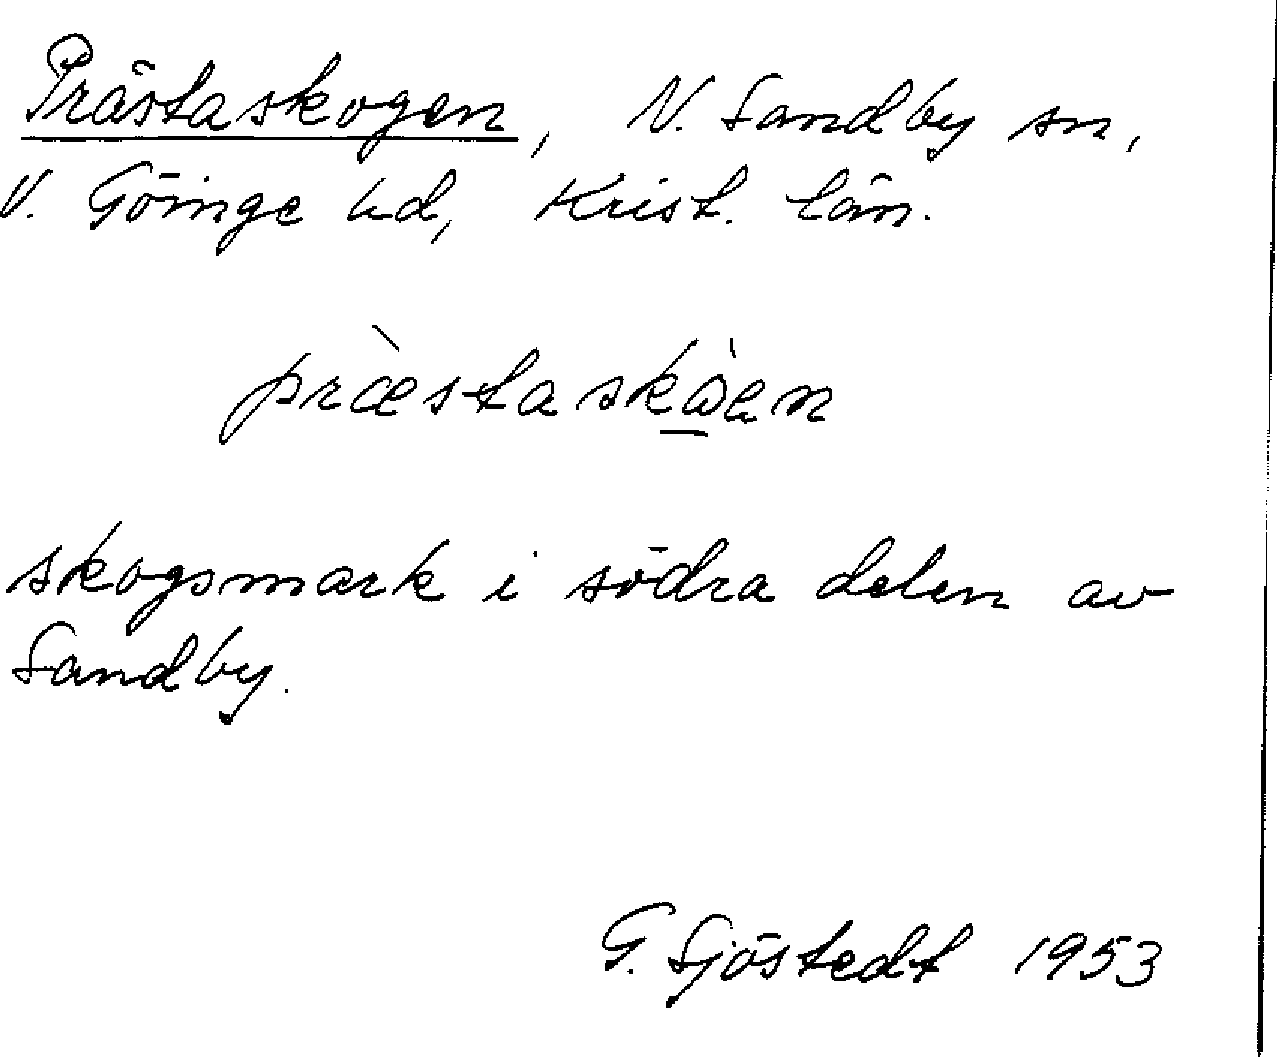 Prästaskogen, N. Sandby sn,
V. Göinge hd, Krist. län.
præ̀staskå̀en
skogsmark i södra delen av
Sandby.
G. Sjöstedt 1953